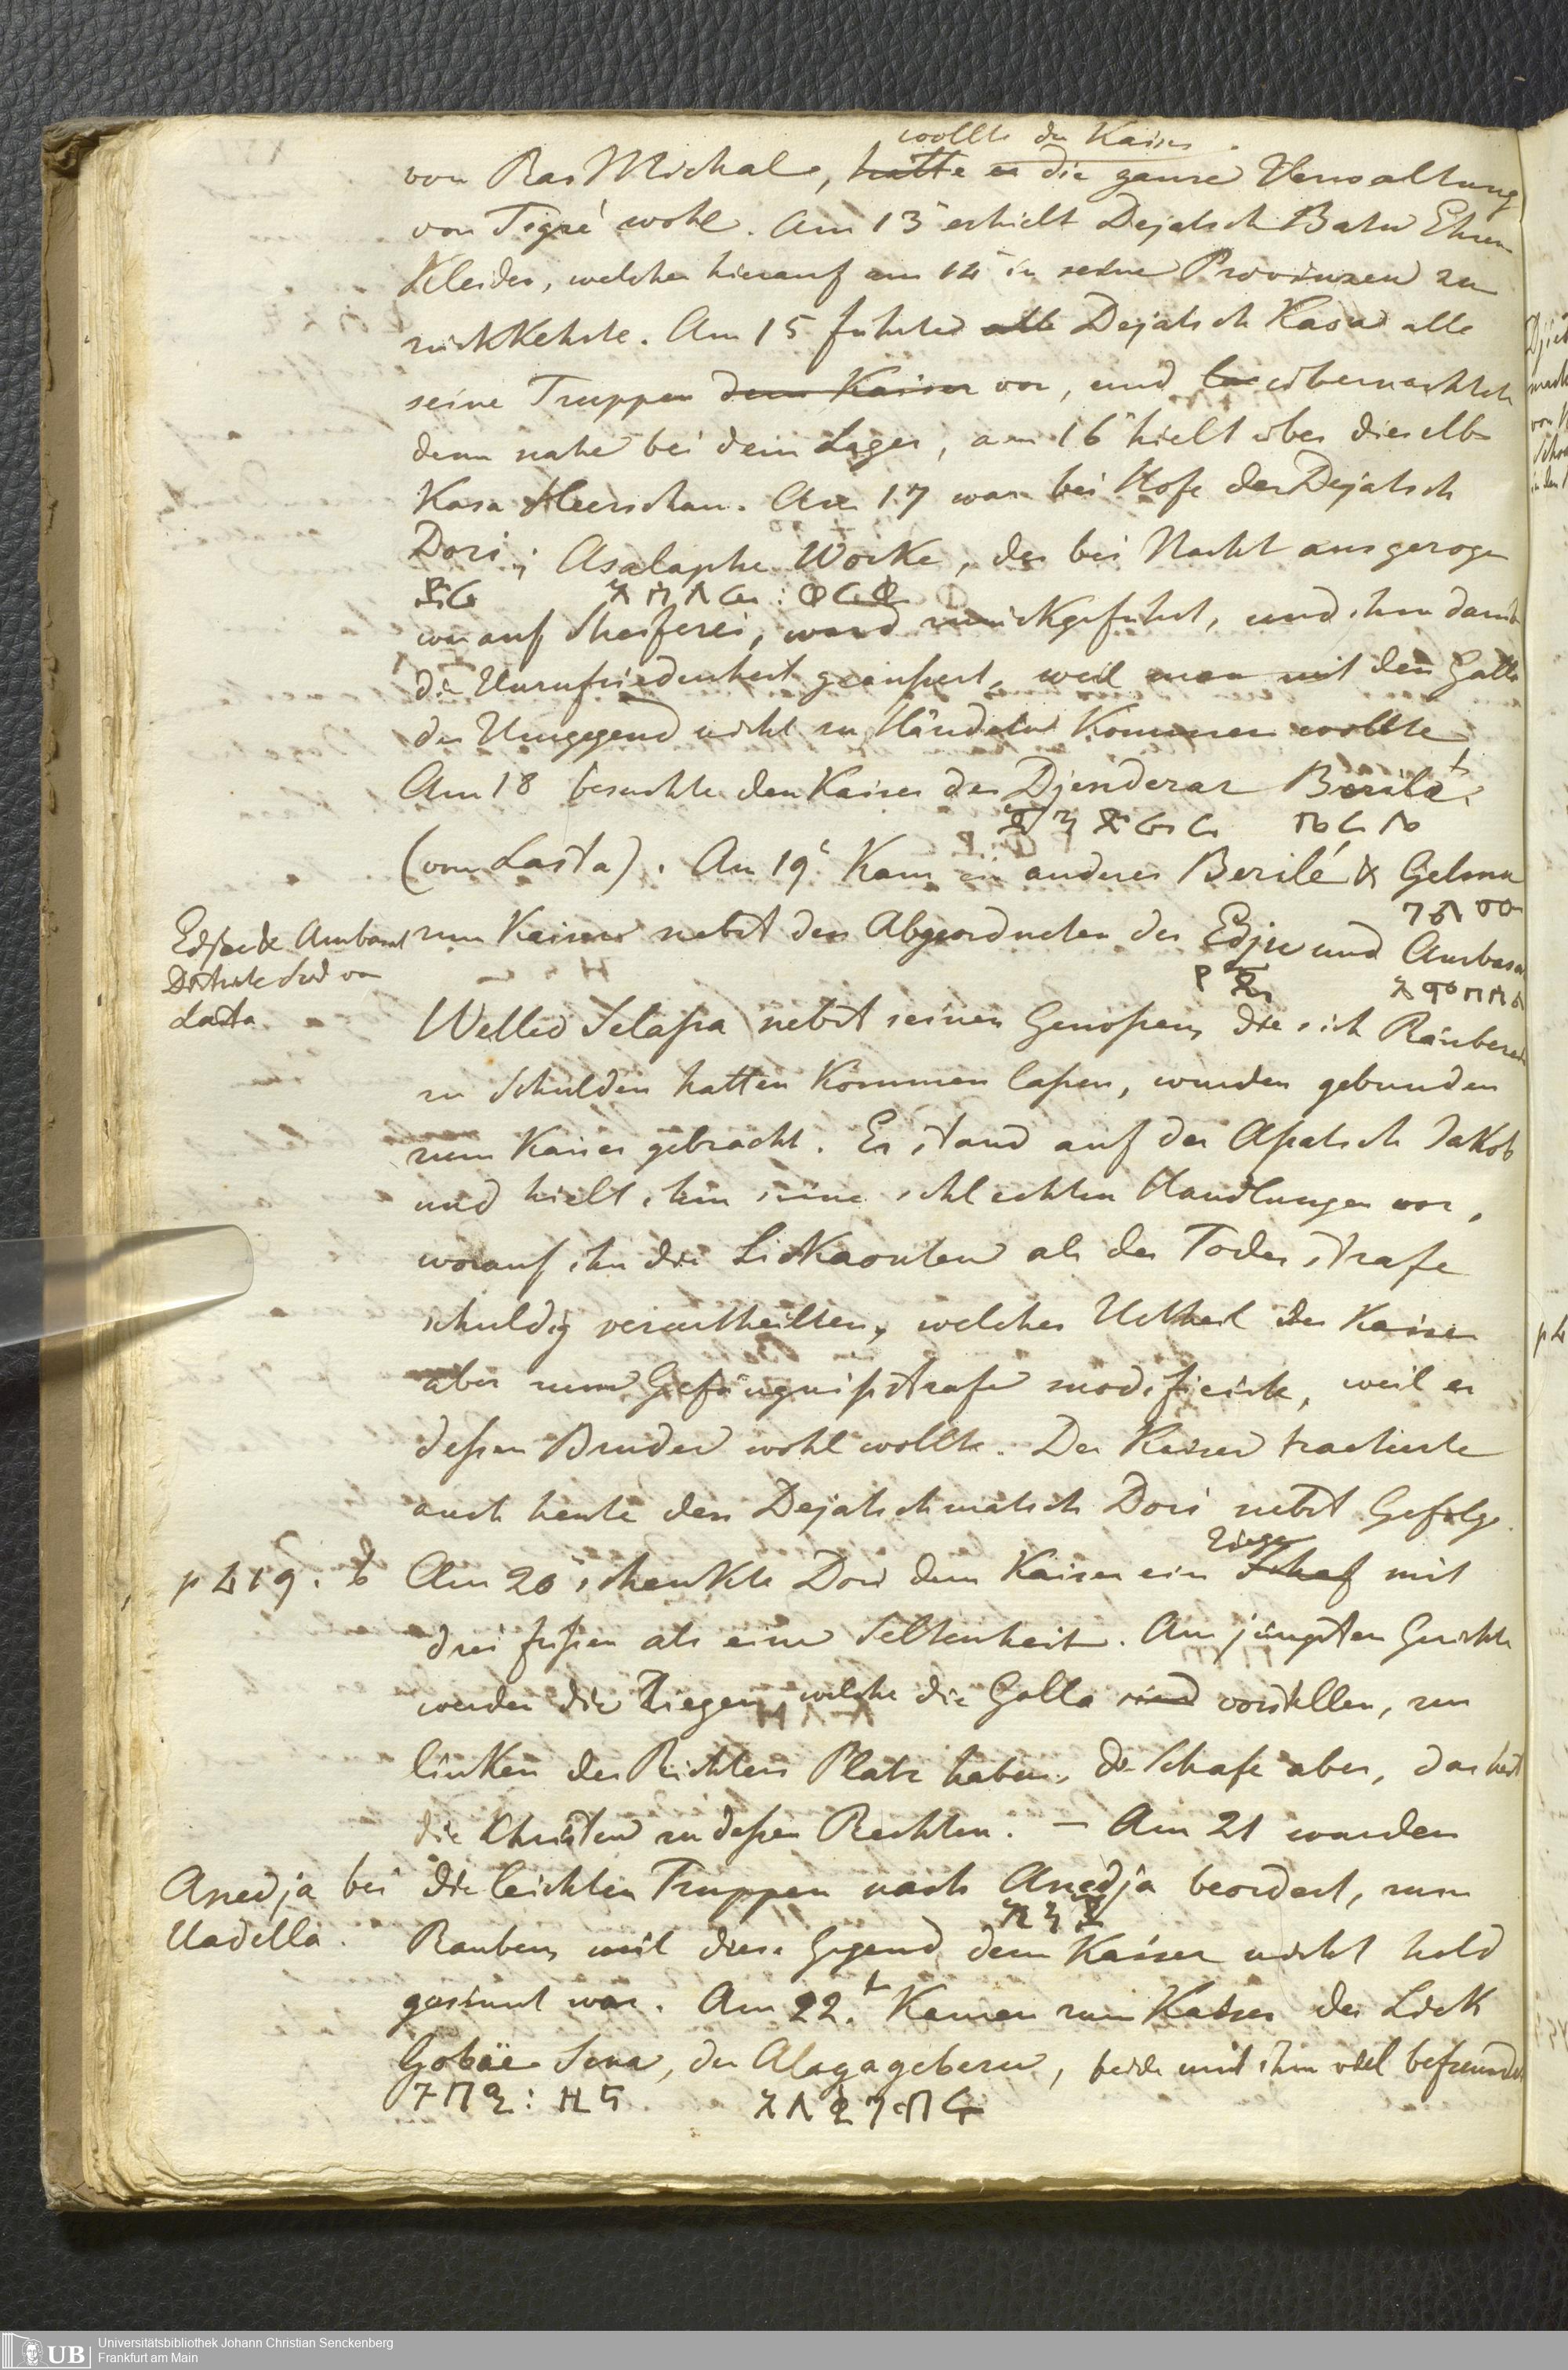 wollte der Kaiser
von Ras Michale, hatte er die ganze Verwaltung
von Tigré wohl. Am 13ṇ erhielt Dejatsch Batu Ehren
Kleider, welcher hierauf am 14ṇ in seine Provinzen zu
rückkehrte. Am 15 führte alle Dejatsch Kasa alle
seine Truppen dem Kaiser vor, und übernachtete
denn nahe bei dem Lager, am 16ṇ hielt über dieselbe
Kasa Heerschau. Am 17 war bei Hofe der Dejatsch
Dori; Asalaphe Worke, der bei Nacht ausgezogen
ዶሪ አሳላፌ : ወርቄ
war auf Streiferei, ward zurückgeführt, und ihm damit
die Unzufriedenheit geäußert, weil man mit den Galla
der Umgegend nicht zu Händeln kommen wollte
Am 18 besuchte den Kaiser der Djenderar Berilé
ጀንደረር ቤርሌ
(von Lasta). Am 19 Kam ein anderer Berilé & Gelmu
ገልሙ
zum Kaiser nebst den Abgeordneten der Edju und Ambasal
Edju & Ambasal
Districte Süd von
Lasta
የጁ አምባሰል
Welled Selaßa nebst seinen Genoßen, die sich Räuberei
zu Schulden hatten kommen laßen, wurden gebunden
zum Kaiser gebracht. Es stand auf der Asalsch Jakob
und hielt ihm seine schlechten Handlungen vor,
worauf ihn die Likaonten als der Todes strafe
schuldig verurtheilten, welches Urtheil der Kaiser
aber zum Gefängnißstrafe modificirte, weil er
deßen Bruder wohl wollte. Der Kaiser tractierte
auch heute den Dejatschmatsch Dori nebst Gefolge.
Ziege
p 419. b Am 20 schenkte Dori dem Kaiser ein Schaf mit
drei füßen als eine Seltenheit. Am jüngsten Gericht
werden die Ziegen, welche die Galla sind vorstellen, zur
linken des Richters Platz haben, die Schafe aber, das heist
die Christen zu deßen Rechten. – Am 21 wurden
Anedja bei
Uadella.
die leichten Truppen nach Anedja beordert, zum
አንጃ
Rauben, weil diese Gegend dem Kaiser nicht hold
gesinnt war. Am 22. Kamen zum Kaiser der Lick
Gobäe Sena, der Alagageberu, beide mit ihm viel befreundet
ጎበዜ : ዜና አለቃገብሩ